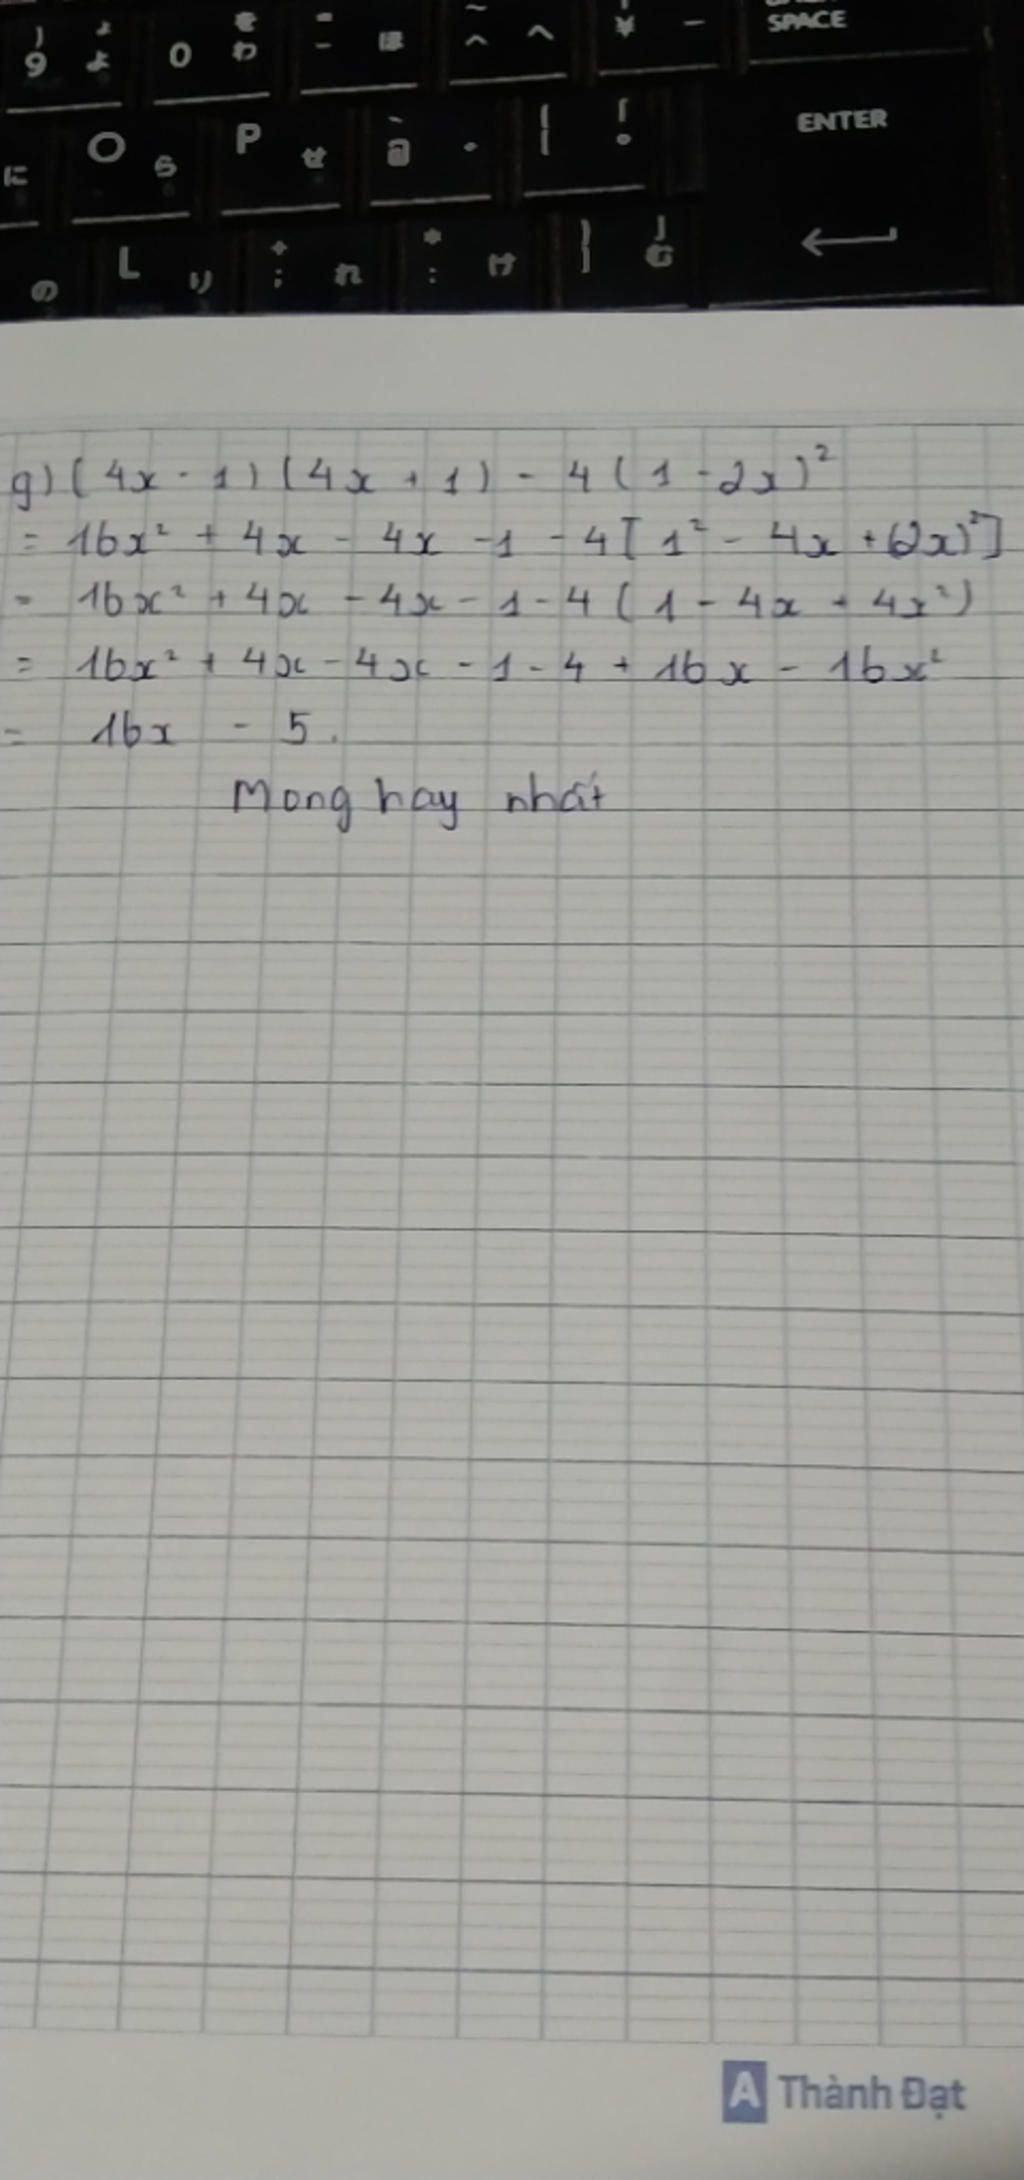 ) ょ を = ~ ¥ - SPACE
9 ょ 0 わ - ほ ^ へ
O ら P せ ` @ [ 「 ° ENTER
に
L り + ; れ * : け ] 」 む
の
g) (4x - 1) (4x + 1) - 4 (1 - 2x)²
= 16x² + 4x - 4x - 1 - 4 [1² - 4x + (2x)²]
= 16x² + 4x - 4x - 1 - 4 (1 - 4x + 4x²)
= 16x² + 4x - 4x - 1 - 4 + 16x - 16x²
= 16x - 5.
Mong hay nhất
A Thành Đạt